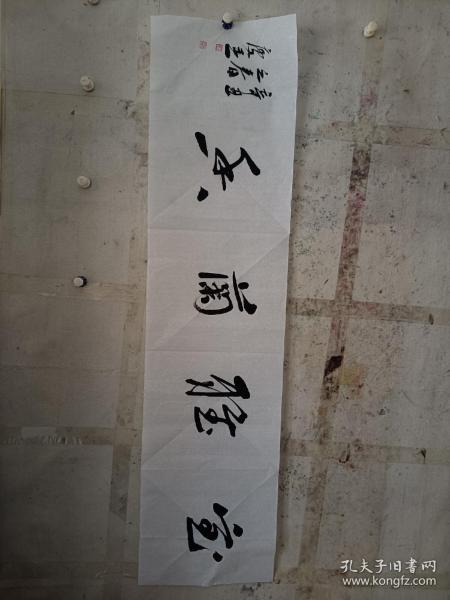 室雅蘭香
辛丑
孔夫子旧书网
www.kongfz.com